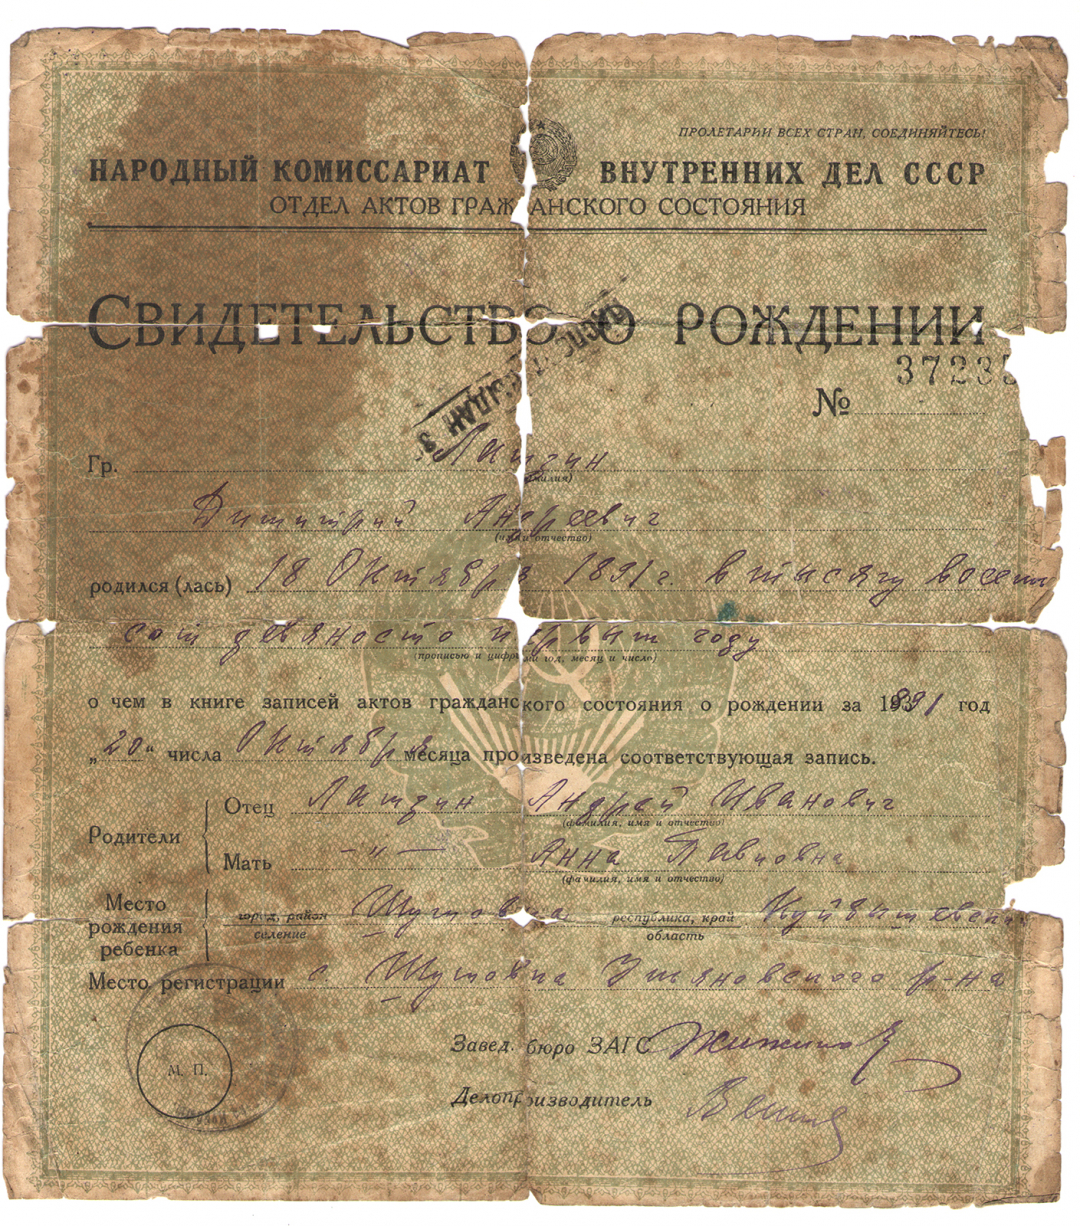 ПРОЛЕТАРИИ ВСЕХ СТРАН, СОЕДИНЯЙТЕСЬ!
НАРОДНЫЙ КОМИССАРИАТ ВНУТРЕННИХ ДЕЛ СССР
ОТДЕЛ АКТОВ ГРАЖДАНСКОГО СОСТОЯНИЯ
СВИДЕТЕЛЬСТВО О РОЖДЕНИИ
3723
№
Гр. Латдин
(фамилия)
Дититрий Андреевич
(имя и отчество)
родился (лась) 18 Октября 1891 г. в тысячу восем
сот девяносто первым году
(прописью и цифрами год, месяц и число)
о чем в книге записей актов гражданского состояния о рождении за 1891 год
„20" числа Октября месяца произведена соответствующая запись.
Родители
Отец Андрей Иванович
(фамилия, имя и отчество)
Мать —„— Анна Павловна
(фамилия, имя и отчество)
Место рождения ребенка
город, район селение республика, край область
Место регистрации с. Ульяновского р-на
Завед. бюро ЗАГС
М. П.
Делопроизводитель